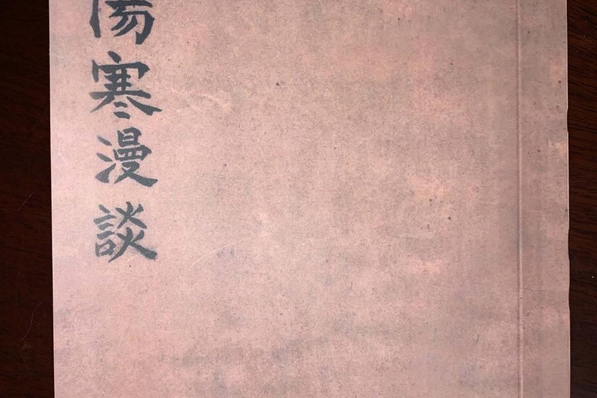 傷寒漫談